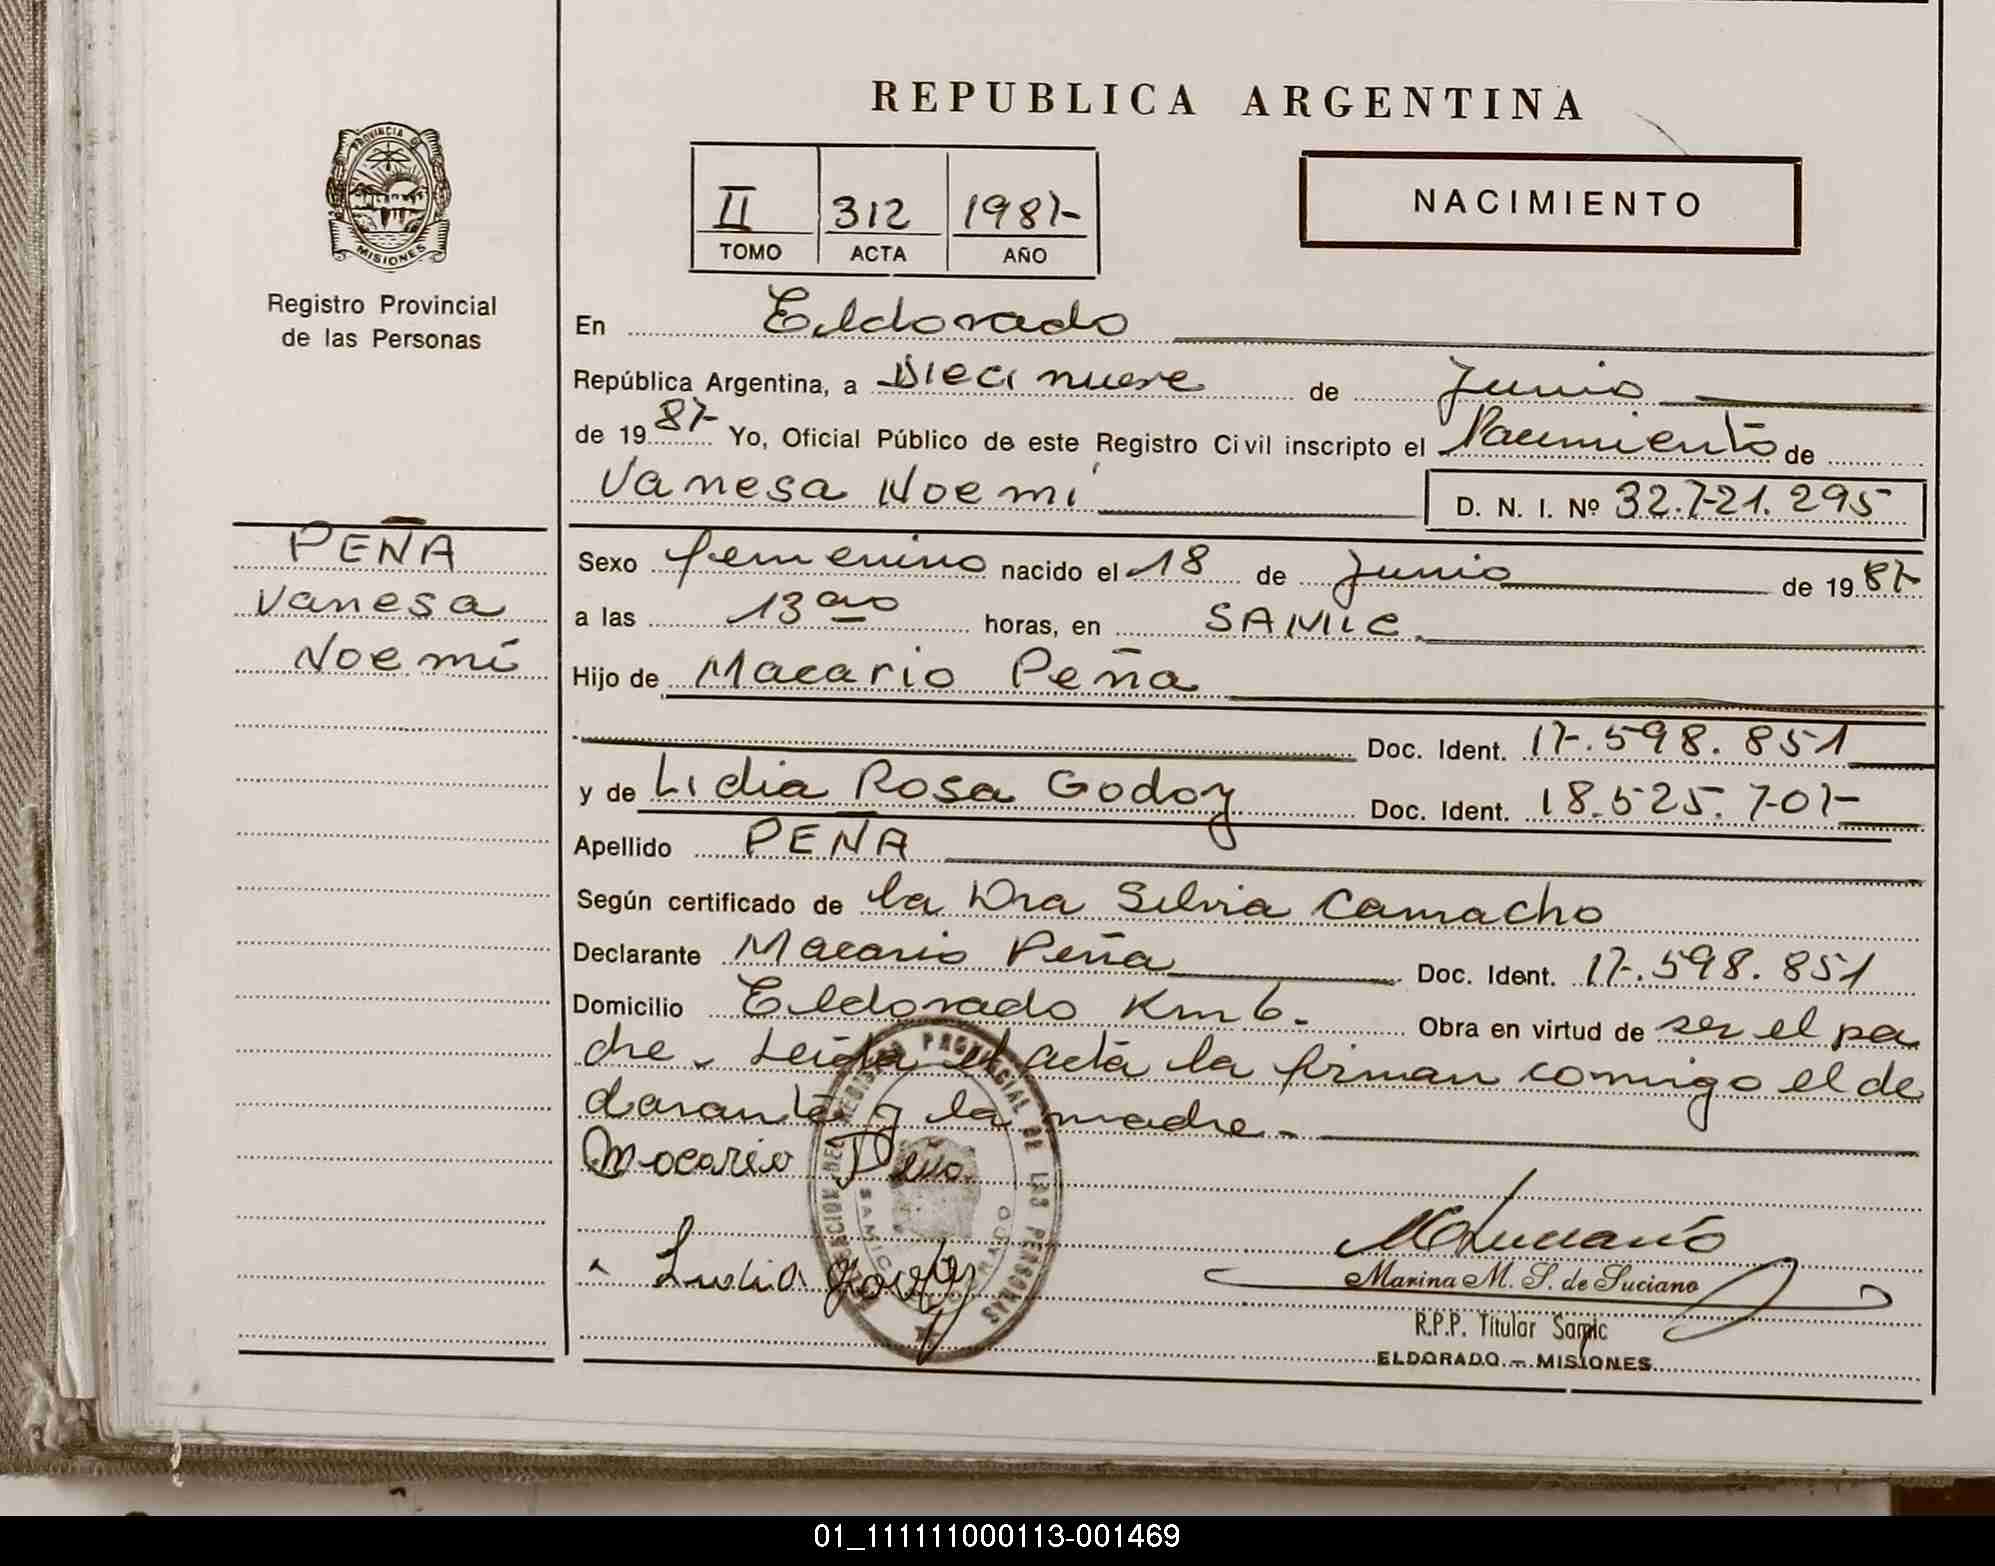 REPUBLICA ARGENTINA
PROVINCIA DE
MISIONES
Registro Provincial
de las Personas
II 312 1987-
TOMO ACTA AÑO
NACIMIENTO
En Eldorado
República Argentina, a Dieci nueve de Junio
de 1987- Yo, Oficial Público de este Registro Civil inscripto el Nacimiento de
Vanesa Noemí D. N. I. Nº 32.721.295
PEÑA
Vanesa
Noemí
Sexo femenino nacido el 18 de Junio de 1987
a las 13 horas, en SAMIC.
Hijo de Macario Peña
Doc. Ident. 17.598.851
y de Lidia Rosa Godoy Doc. Ident. 18.525.707-
Apellido PEÑA
Según certificado de la Dra Silvia Camacho
Declarante Macario Peña Doc. Ident. 17.598.851
Domicilio Eldorado Km 6. Obra en virtud de ser el pa
dre. Leída el acta la firman conmigo el de
clarante y la madre.-
Macario Peña
Marina M. S. de Luciano
R.P.P. Titular Samic
ELDORADO - MISIONES
PROVINCIAL DE LAS PERSONAS
SAMIC
01_111111000113-001469